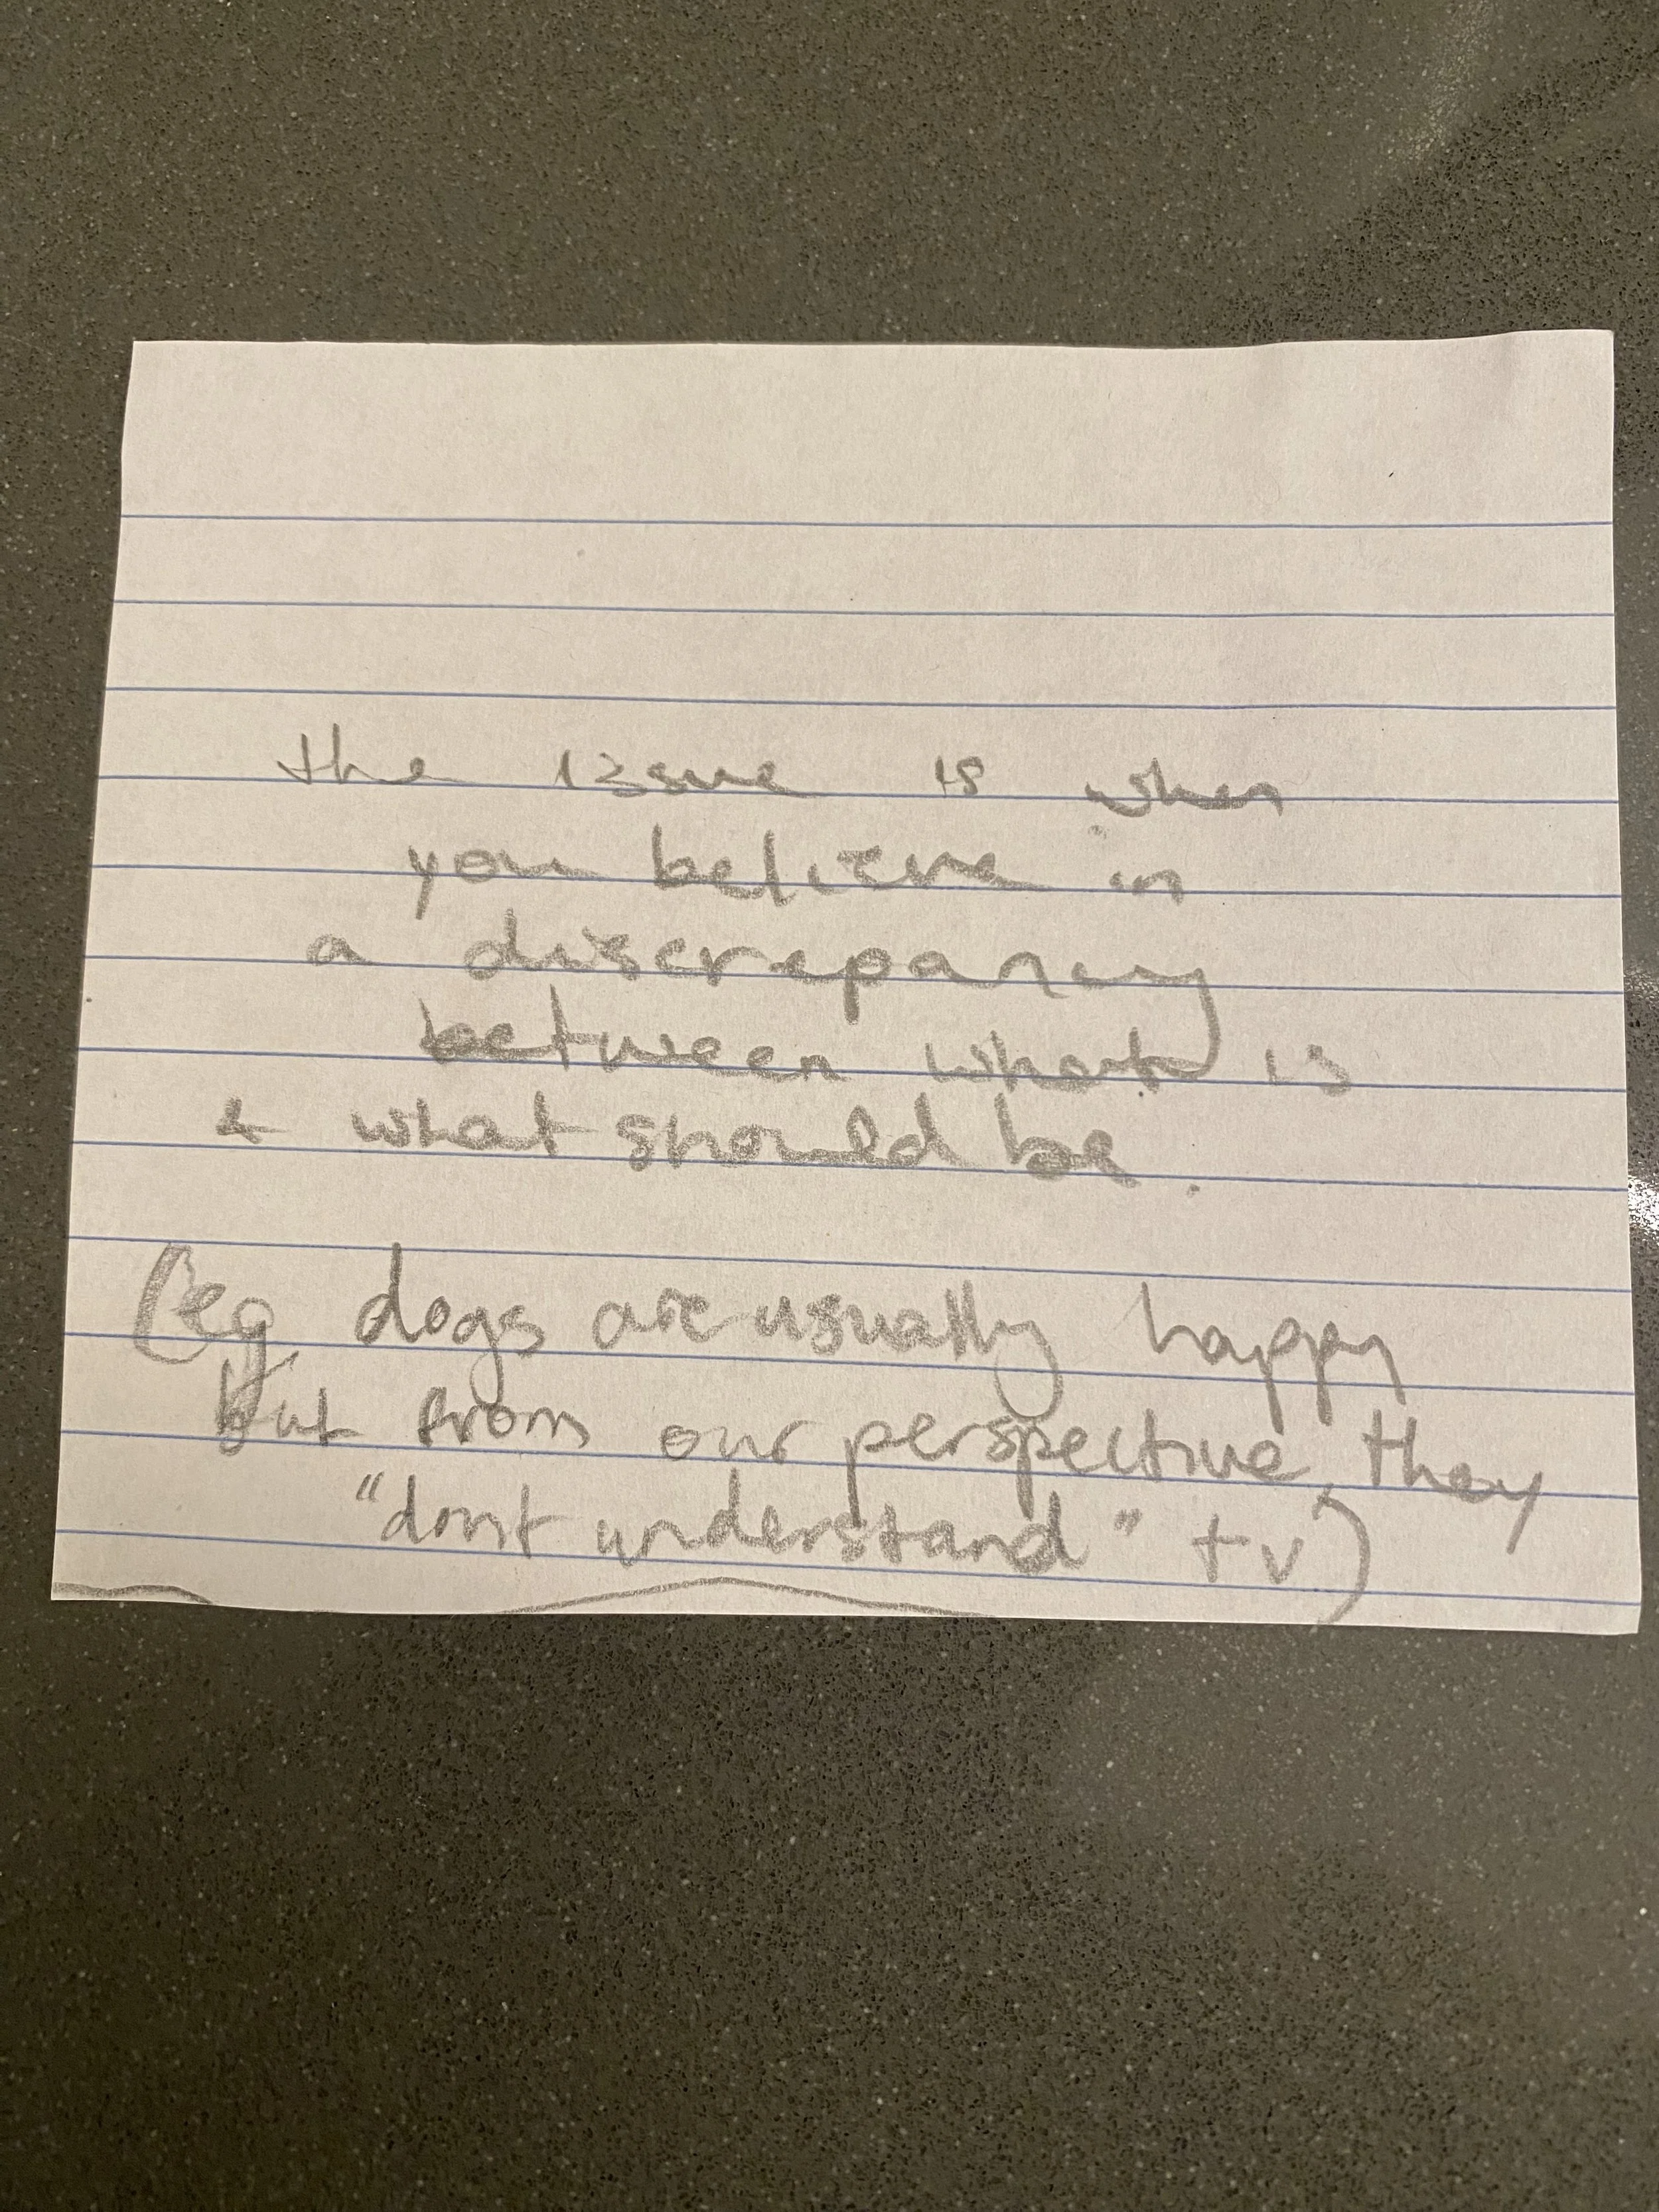 the issue is when
you believe in
a discrepancy
between what is
& what should be.
(eg. dogs are usually happy
but from our perspective, they
"dont understand" tv)